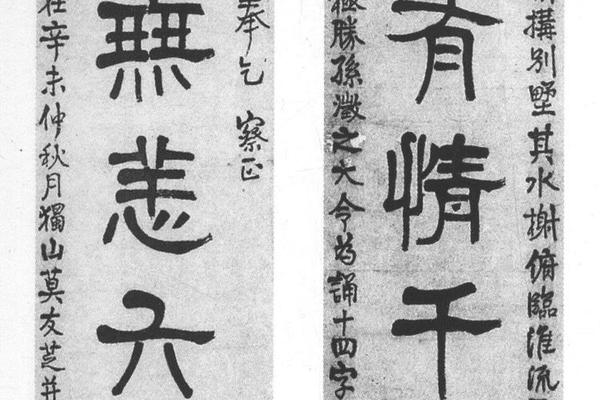 搆別墅其水榭俯臨淮流
有情千
極勝孫澂之大令為誦十四字
奉乞 察正
無恙六
在辛未仲秋月獨山莫友芝并